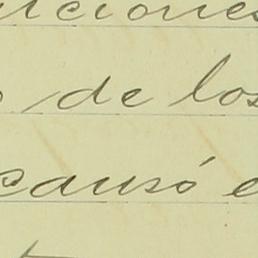 uciones
de los
causó e